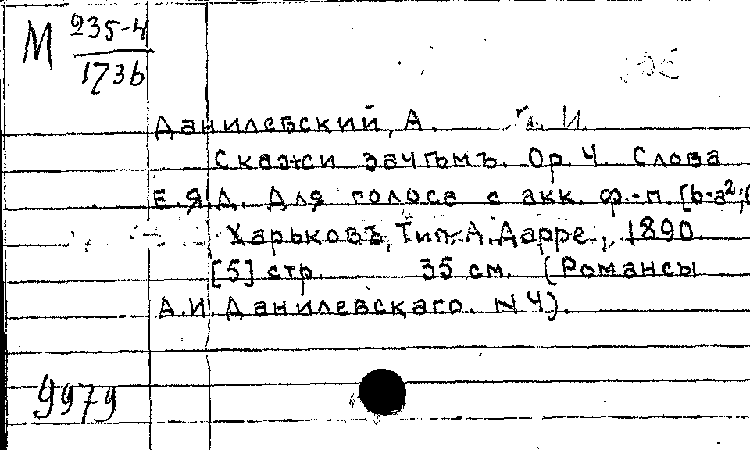 М 235-4
1736
Данилевский, А. И.
Скажи зачѣмъ. Ор. 4. Слова
Е.Я.Д. Для голоса с акк. ф.-п. [b-a²;
Харьковъ, Тип. А. Дарре, 1890.
[5] стр. 35 см. (Романсы
А.И. Данилевскаго. N 4).
9979